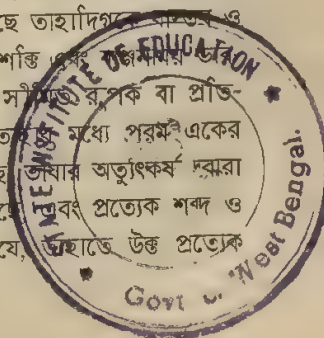 ছে তাহাদিগকে ও
শক্তি এবং
রূপক বা প্রতি-
মধ্যে পরম একের
ভাষার অত্যুৎকর্ষ দ্বারা
এবং প্রত্যেক শব্দ ও
যে, উক্ত প্রত্যেক
STATE INSTITUTE OF EDUCATION
Govt of West Bengal.